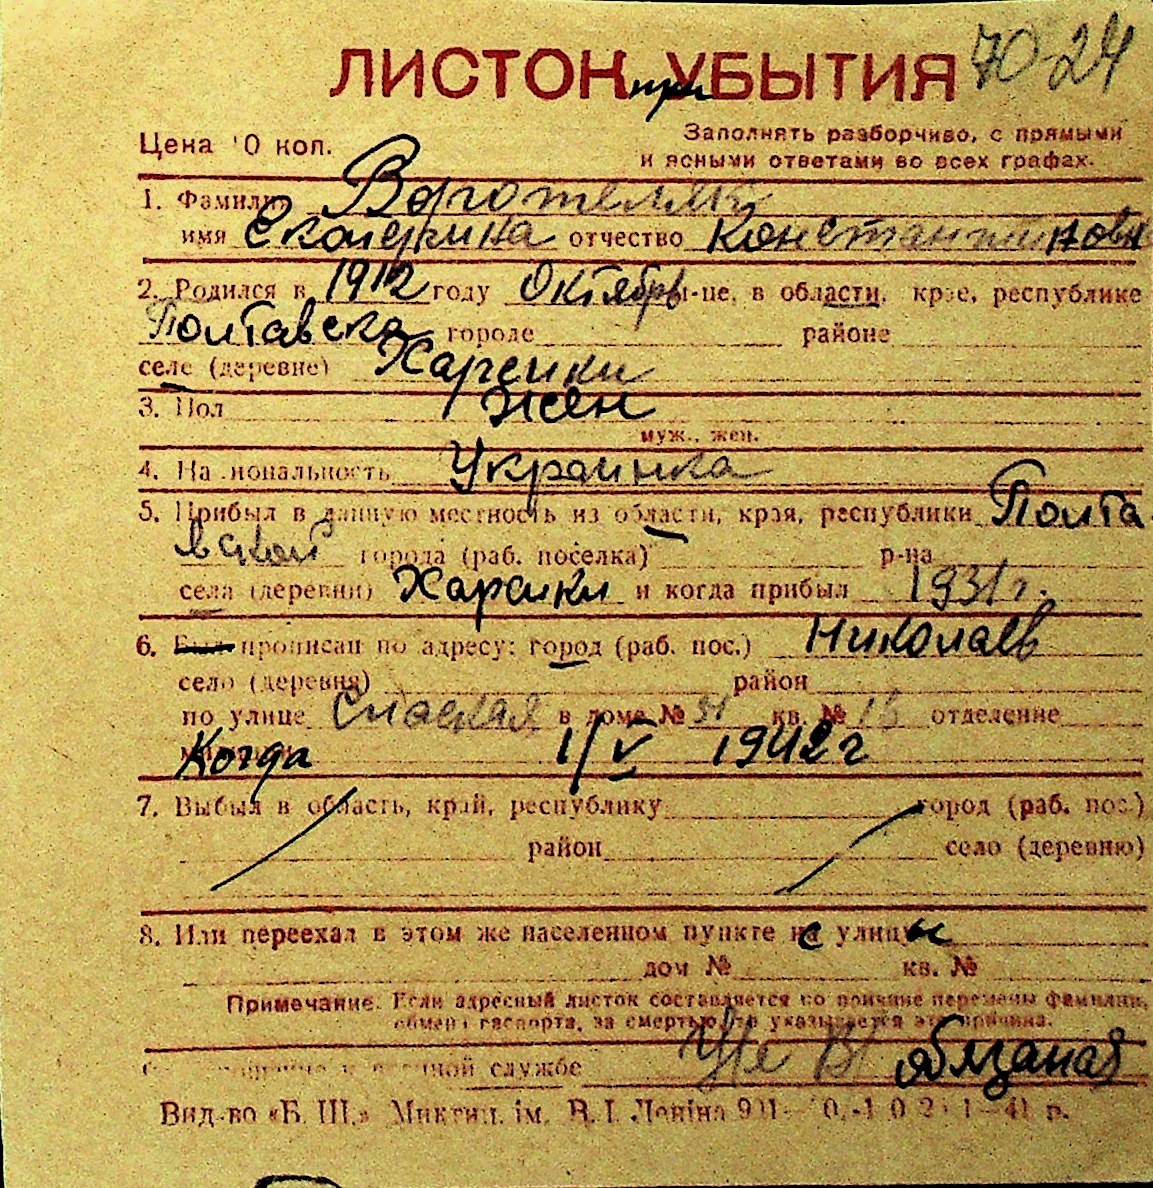 ЛИСТОК при УБЫТИЯ 70-24
Цена 10 коп.
Заполнять разборчиво, с прямыми
и ясными ответами во всех графах.
1. Фамилия
имя Екатерина отчество Константиновна
2. Родился в 1912 году Октябрь м-це, в области, крае, республике
Полтавска городе районе
селе (деревне) Харсики
3. Пол жен
муж., жен.
4. Национальность Украинка
5. Прибыл в данную местность из области, края, республики Полта
вской города (раб. поселка) р-на
села (деревни) Харсики и когда прибыл 1931 г.
6. Был прописан по адресу: город (раб. пос.) Николаев
село (деревня) район
по улице Спаская в доме № кв. № отделение
Когда 1/V 1942 г
7. Выбыл в область, край, республику город (раб. пос.)
район село (деревню)
8. Или переехал в этом же населенном пункте с улицы
дом № кв. №
Примечание. Если адресный листок составляется по причине перемены фамилии,
обмена паспорта, за смертью, то указывается эта причина.
службе обязаная
Вид-во «Б. Ш.» Микол. ім. В. І. Леніна